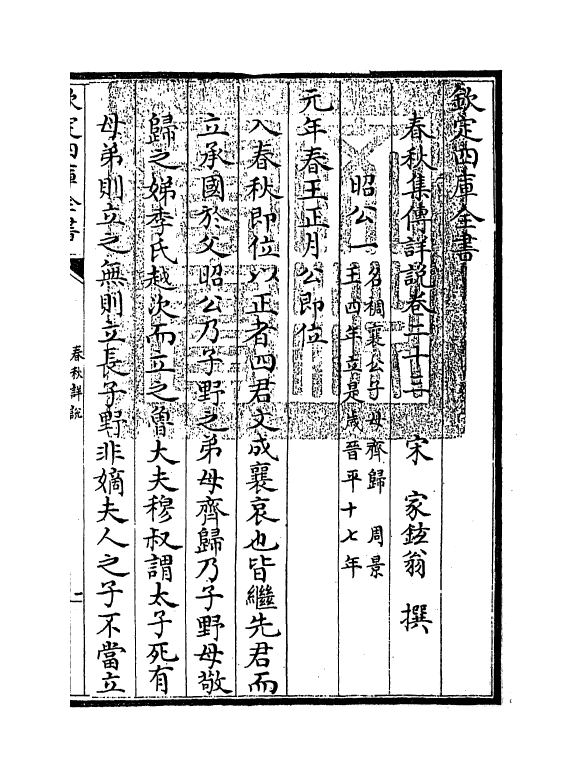 欽定四庫全書
春秋集傳詳說卷二十三
宋 家鉉翁 撰
昭公一
名稠襄公子母齊歸 周景
王四年立是歲晉平十七年
元年春王正月公即位
入春秋即位以正者四君文成襄哀也皆繼先君而
立承國於父昭公乃子野之弟母齊歸乃子野母敬
歸之娣季氏越次而立之魯大夫穆叔謂太子死有
母弟則立之無則立長子野非嫡夫人之子不當立
欽定四庫全書
春秋詳說